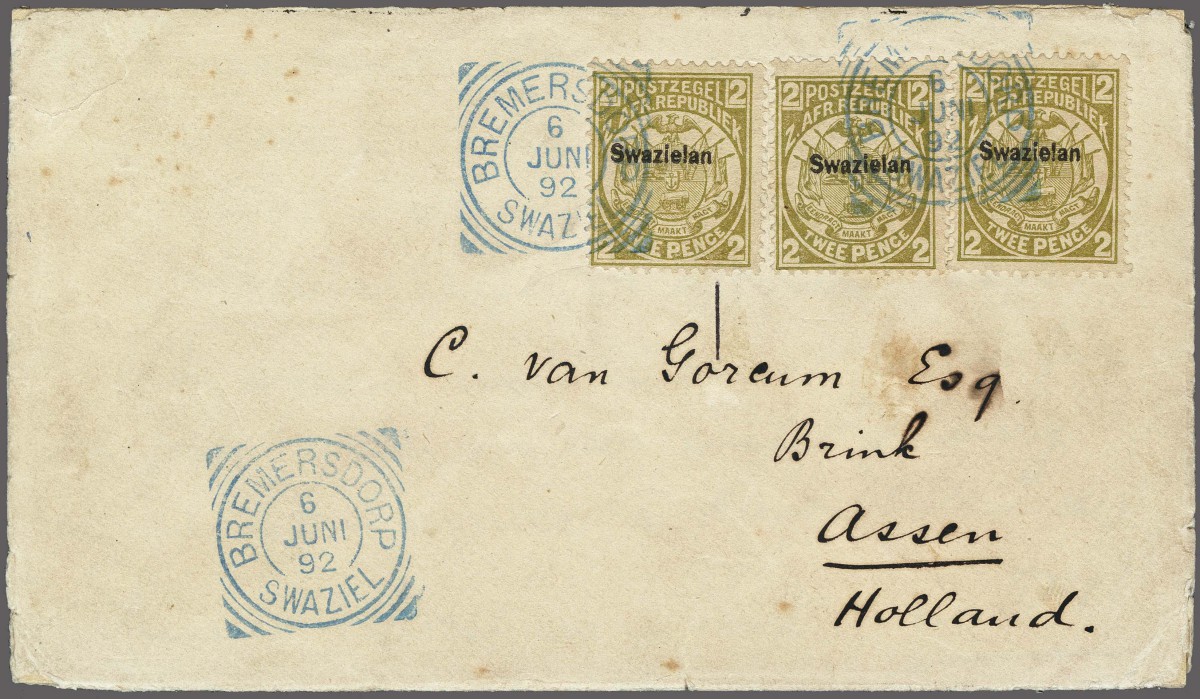 BREMERSDORP
6
JUNI
92
SWAZIEL
2 POSTZEGEL 2
Z AFR REPUBLIEK
Swazielan
EENDRAGT MAAKT MAGT
TWEE PENCE
2 2
2 POSTZEGEL 2
Z AFR REPUBLIEK
Swazielan
EENDRAGT MAAKT MAGT
TWEE PENCE
2 2
2 POSTZEGEL 2
Z AFR REPUBLIEK
Swazielan
EENDRAGT MAAKT MAGT
TWEE PENCE
2 2
BREMERSDORP
6
JUNI
92
SWAZIEL
C. van Gorcum Esq.
Brink
Assen
Holland.
BREMERSDORP
6
JUNI
92
SWAZIEL